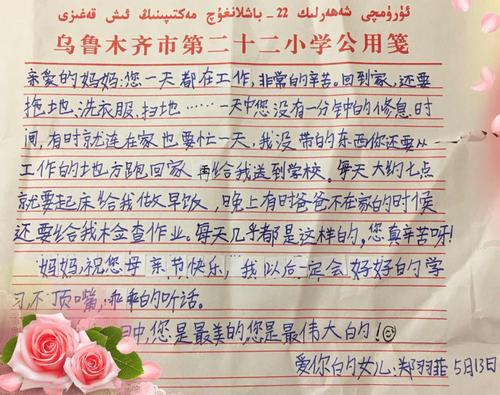 ئۈرۈمچى شەھەرلىك 22 - باشلانغۇچ مەكتىپىنىڭ ئىش قەغىزى
乌鲁木齐市第二十二小学公用笺
亲爱的妈妈:您一天都在工作,非常的辛苦。回到家,还要
拖地、洗衣服、扫地……一天中您没有一分钟的修息时
间,有时就连在家也要忙一天,我没带的东西你还要从
工作的地方跑回家再给我送到学校。每天大约七点
就要起床给我做早饭,晚上有时爸爸不在家的时候
还要给我检查作业。每天几乎都是这样的,您真辛苦呀!
妈妈,祝您母亲节快乐,我以后一定会好好的学
习,不顶嘴,乖乖的听话。
中,您是最美的,您是最伟大的!
爱你的女儿:郑羽菲 5月13日